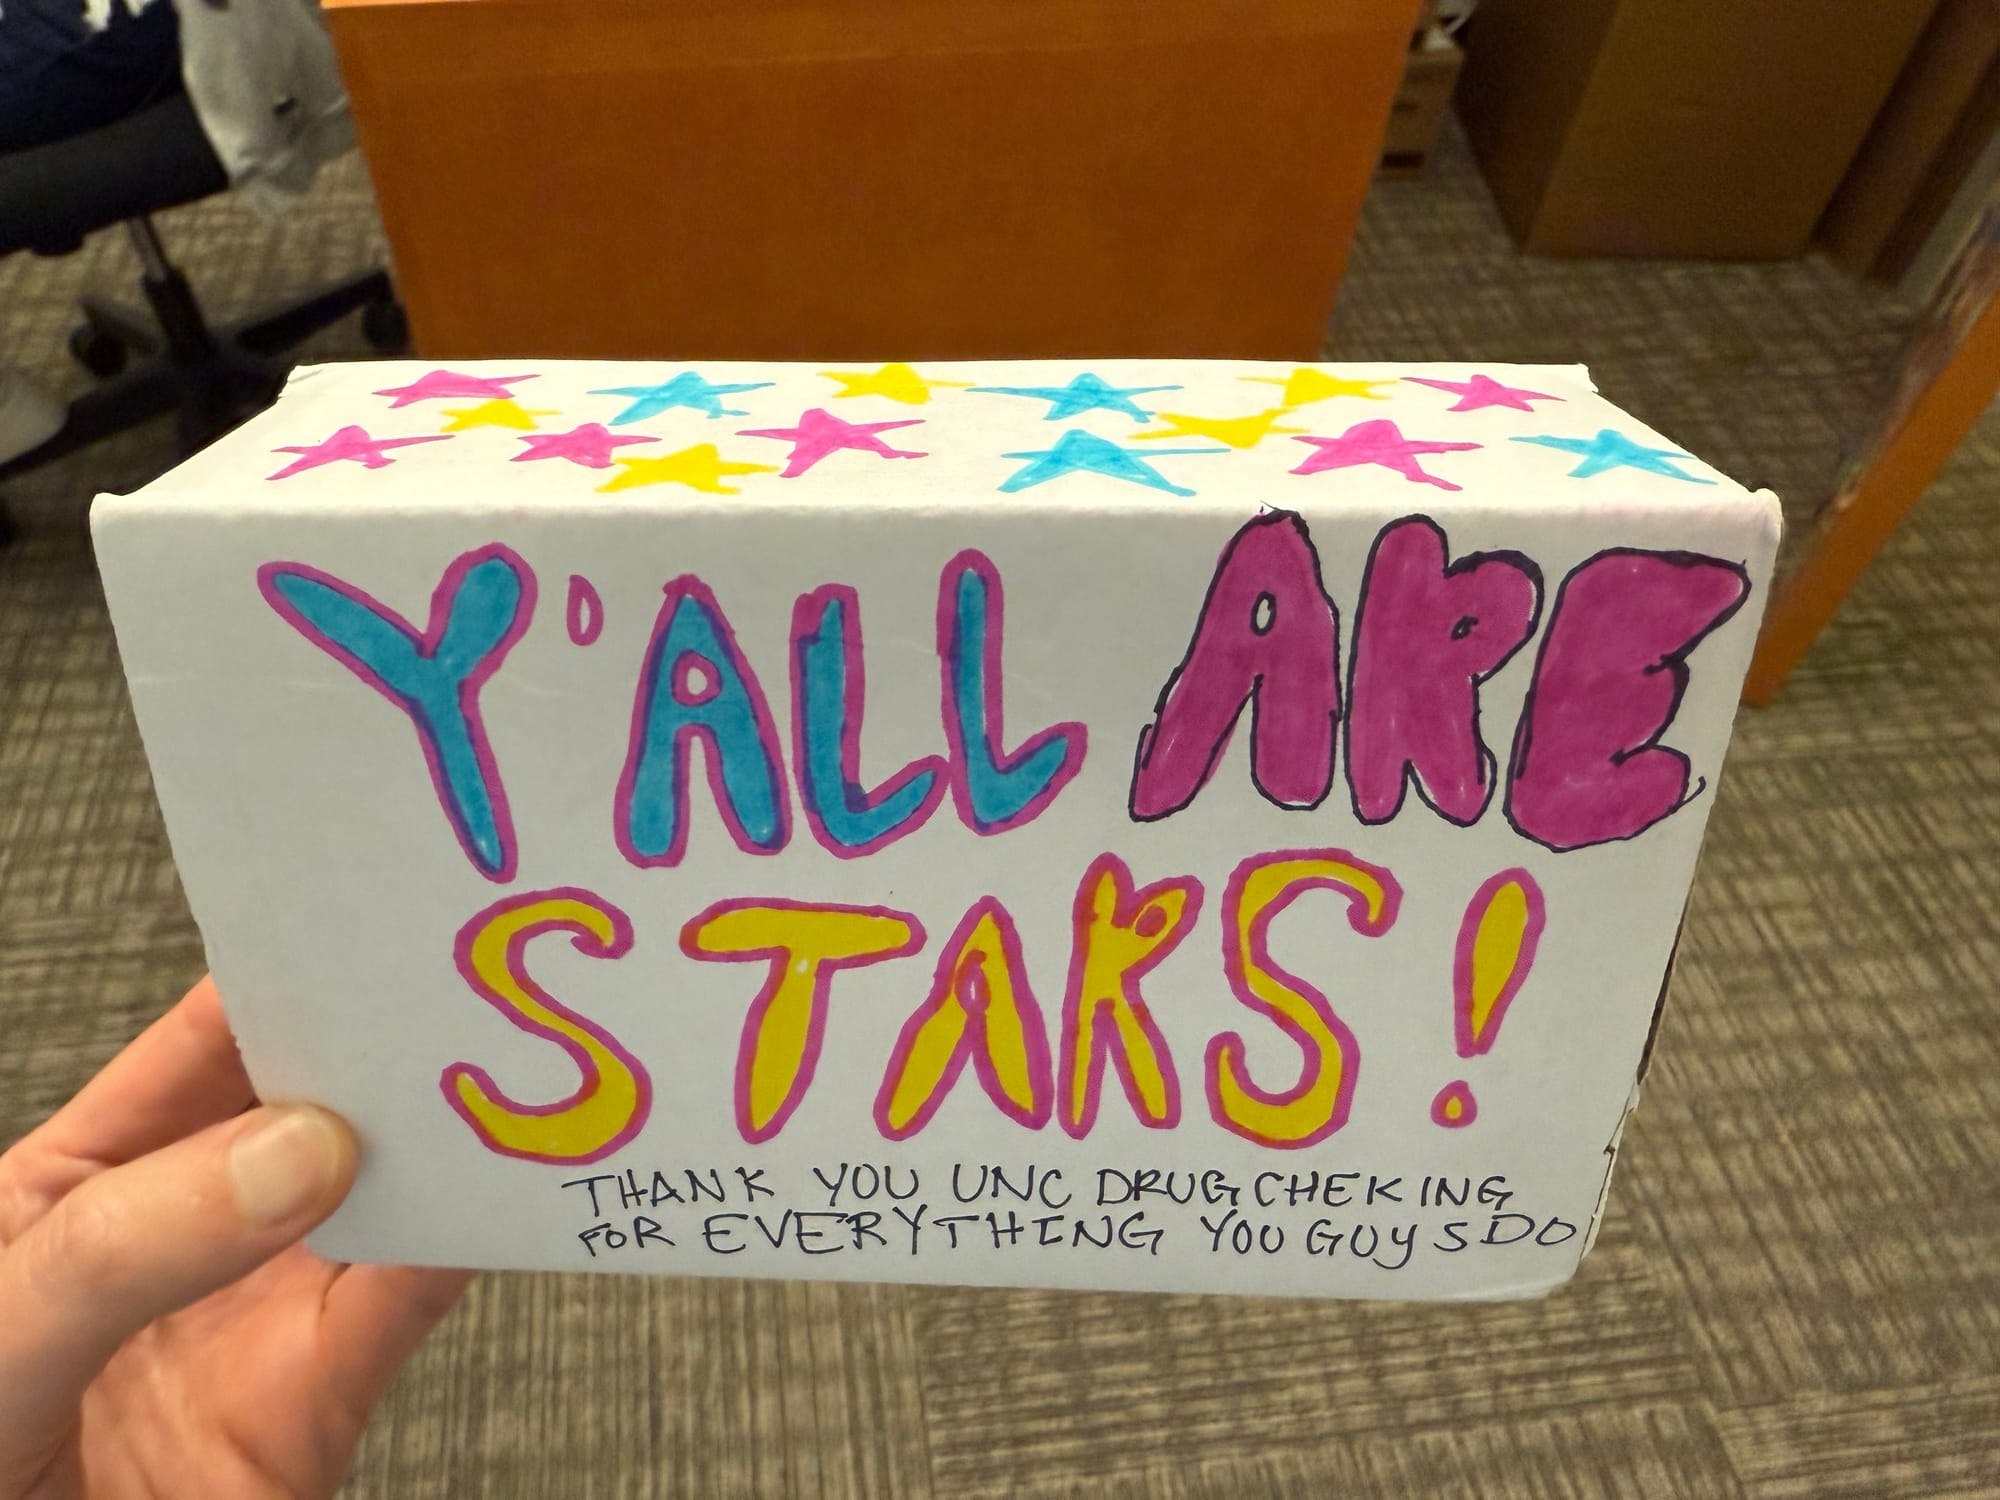 Y'ALL ARE
STARS!
THANK YOU UNC DRUGCHEKING
FOR EVERYTHING YOU GUYS DO